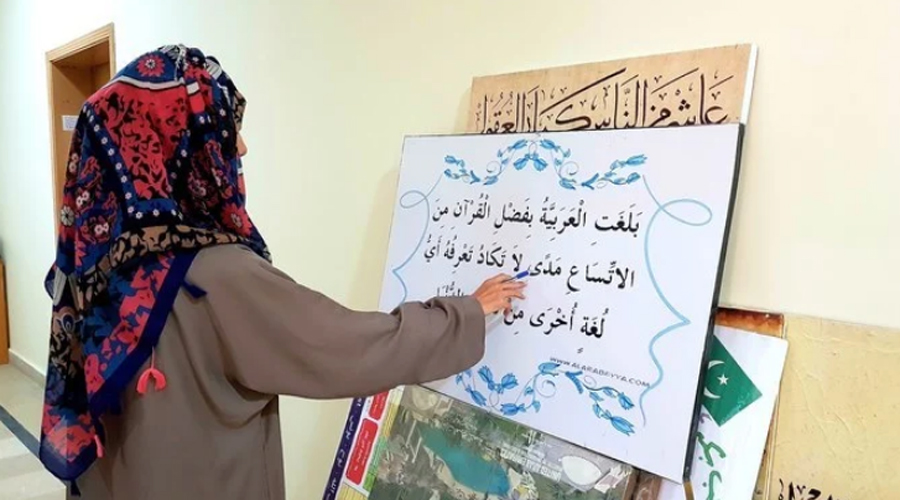 عَاشِرْ مِنَ النَّاسِ كِبَارَ الْعُقُولِ
بَلَغَتِ الْعَرَبِيَّةُ بِفَضْلِ الْقُرْآنِ مِنَ
الاتِّسَاعِ مَدًى لَا تَكَادُ تَعْرِفُهُ أَيُّ
لُغَةٍ أُخْرَى مِنْ
WWW.ALARABEYYA.COM